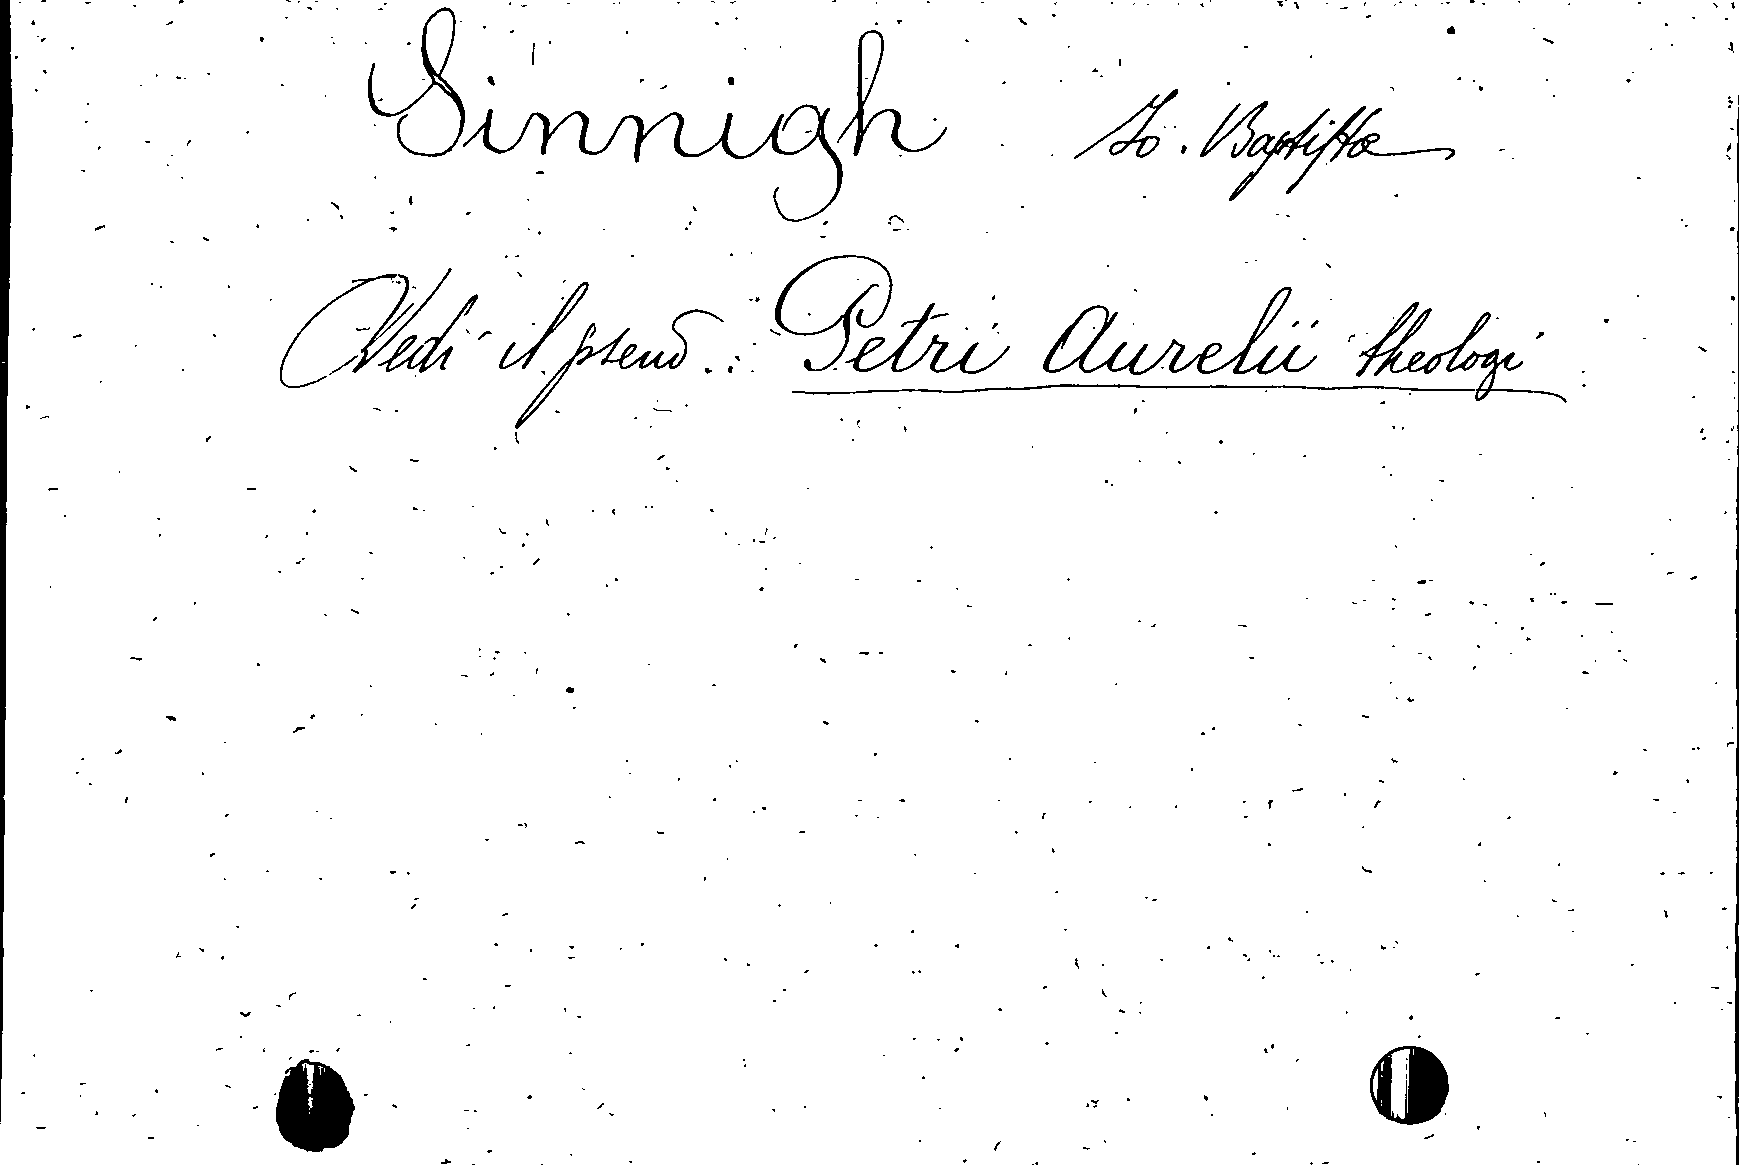 Sinnigh Io. Baptista
Vedi il pseud.: Petri Aurelii theologi